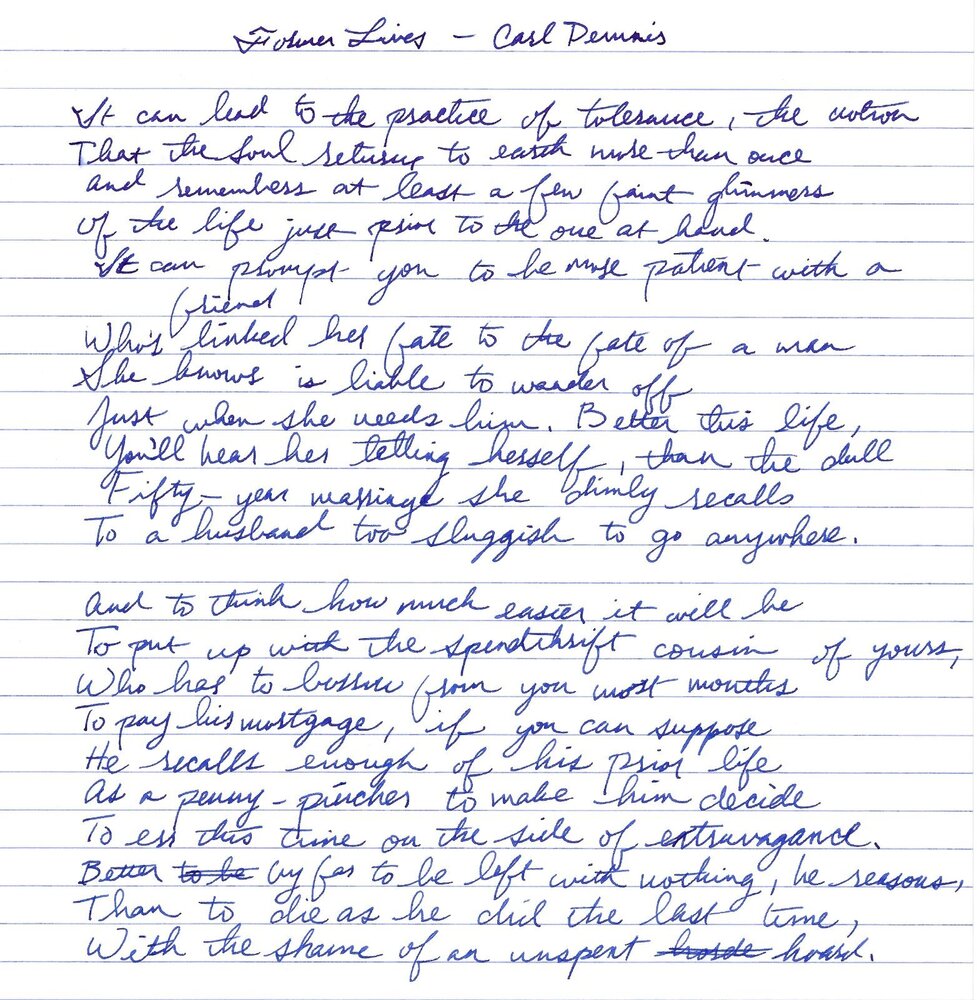 Former Lives – Carl Dennis
It can lead to the practice of tolerance, the notion
That the soul returns to earth more than once
And remembers at least a few faint glimmers
Of the life just prior to the one at hand.
It can prompt you to be more patient with a
friend
Who's linked her fate to the fate of a man
She knows is liable to wander off
Just when she needs him. Better this life,
You'll hear her telling herself, than the dull
Fifty-year marriage she dimly recalls
To a husband too sluggish to go anywhere.
And to think how much easier it will be
To put up with the spendthrift cousin of yours,
Who has to borrow from you most months
To pay his mortgage, if you can suppose
He recalls enough of his prior life
As a penny-pincher to make him decide
To err this time on the side of extravagance.
Better to be by far to be left with nothing, he reasons,
Than to die as he did the last time,
With the shame of an unspent horde hoard.